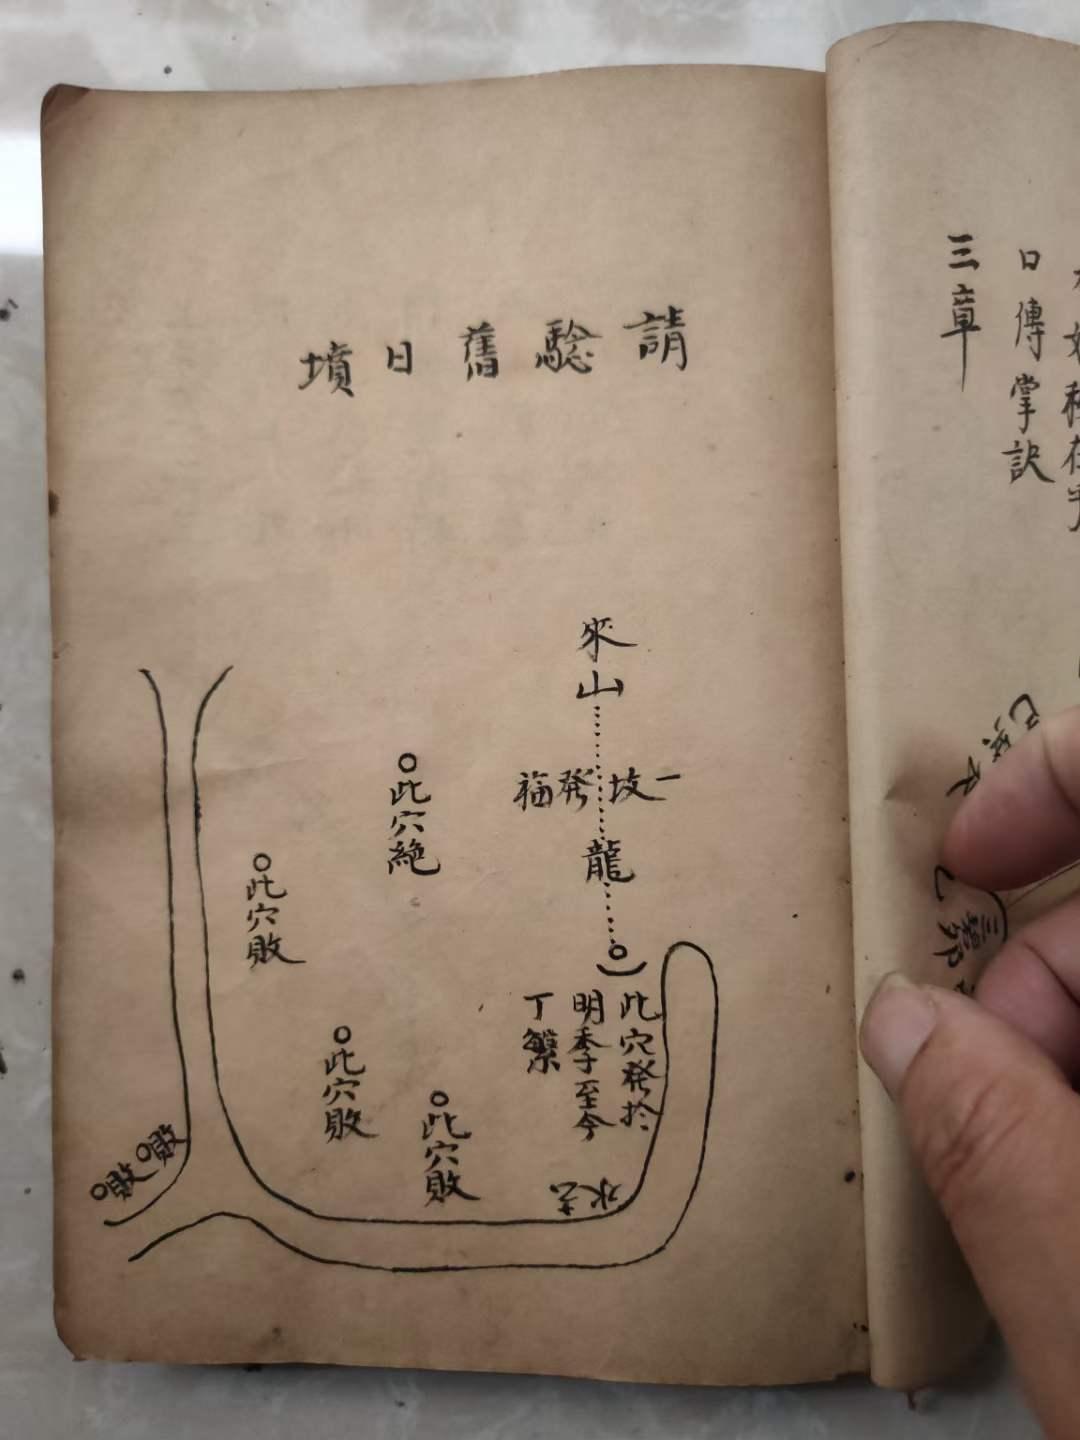 請騐舊日墳
來山
一坟發福
龍
此穴發於
明季至今
丁繁
水去
此穴絶
此穴敗
此穴敗
此穴敗
敗
敗
口傳掌訣
三章